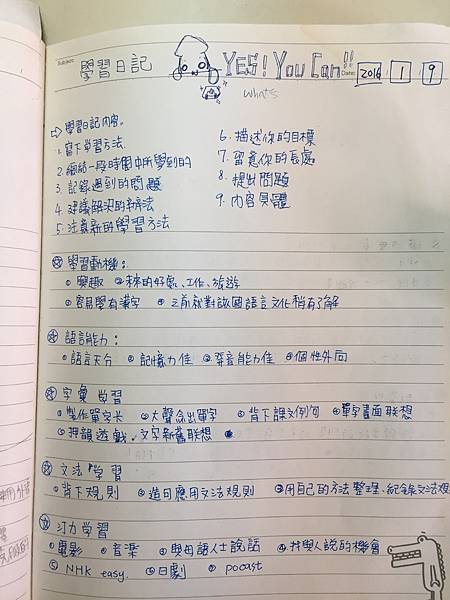 Subject:
學習日記
YES! You Can!!
Date:
2016 1 9
what's
⇨ 學習日記內容。
1. 寫下學習方法
2. 總結一段時間中所學到的
3. 記錄遇到的問題
4. 建議解決的辦法
5. 注意新的學習方法
6. 描述你的目標
7. 留意你的長處
8. 提出問題
9. 內容具體
學習動機:
①興趣 ②未來的好處、工作、旅遊
③容易學有漢字 ④之前就對該國語言文化稍有了解
語言能力:
①語言天分 ②記憶力佳 ③發音能力佳 ④個性外向
字彙學習
①製作單字卡 ②大聲念出單字 ③背下課文例句 ④單字畫面联想
⑤押韻遊戲、文字新舊联想
文法學習
①背下規則 ②造句應用文法規則 ③用自己的方法整理、紀錄文法規
聽力學習
①電影 ②音楽 與母語人士說話 ④找與人説的機會
⑤ NHK easy. ⑥日劇 ⑦ pocast